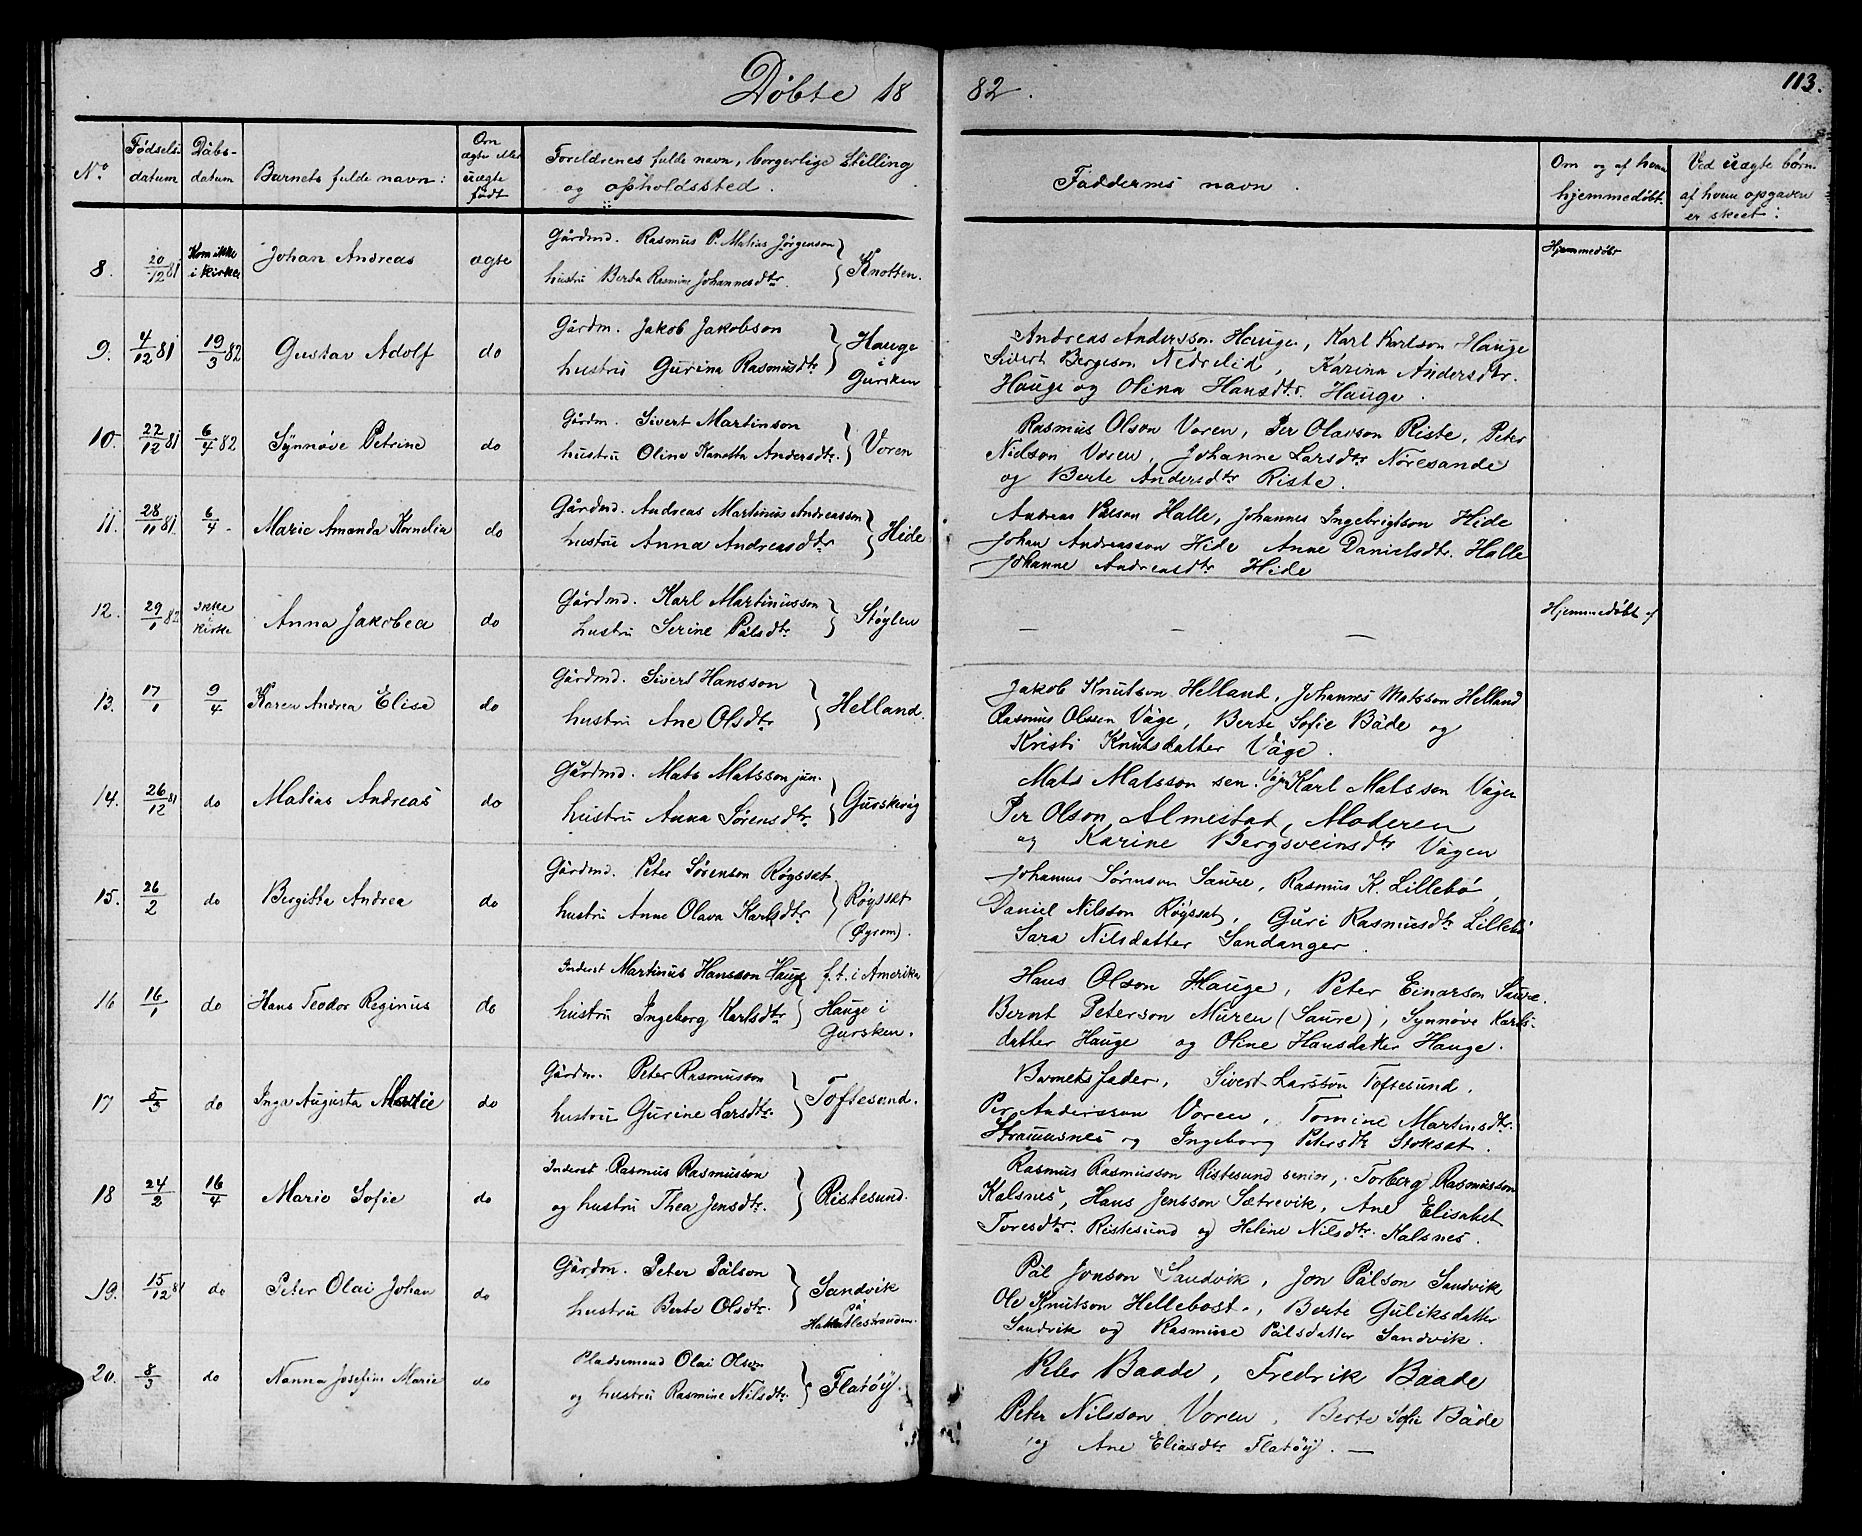 Döbte 18 82. 113.
No. Fødsels-datum Dåbs-datum Barnets fulde navn: Om ægte eller uægte født Foreldrenes fulde navn, borgerlige Stilling og opholdssted. Faddernes navn. Om og af hvem hjemmedøbt. Ved uægte børn af hvem opgaven er skeet:
8. 20/12 81 Kom ikke i kirke Johan Andreas ægte Gårdmd. Rasmus P. Matias Jørgenson Hjemmedøbt
hustru Berta Rasmine Johannesdtr. Knotten.
9. 4/12 81 19/3 82 Gustav Adolf do Gårdm. Jakob Jakobson Andreas Andersson Hauge, Karl Karlson Hauge
hustru Gurina Rasmusdtr Hauge i Gursken Sivert Bergeson Nedrelid, Karina Andersdtr.
Hauge og Olina Hansdtr. Hauge.
10. 22/12 81 6/4 82 Synnøve Petrine do Gårdm. Sivert Martinson Rasmus Olson Voren, Per Olavson Riste, Peter
hustru Oline Kanutta Andersdtr. Voren Nielson Voren, Johanne Larsdtr Nøresande
og Berte Andersdtr Riste.
11. 28/11 81 6/4 - Marie Amanda Kornelia do Gårdmd. Andreas Martinus Andreasson Andreas Pålson Halle, Johannes Ingebrigtson Hide
hustru Anna Andreasdtr Hide Johan Andreasson Hide Anne Danielsdtr. Halle
Johanne Andreasdtr. Hide
12. 29/1 82 ikke i kirke Anna Jakobea do Gårdmd. Karl Martinusson Hjemmedøbt af
hustru Serine Pålsdtr Støylen — — —
13. 17/1 9/4 Karen Andrea Elise do Gårdmd. Sivert Hansson Jakob Knutson Helland, Johannes Matsson Helland
hustru Ane Olsdtr Helland. Rasmus Olsson Våge, Berte Sofie Både og
Kristi Knutsdatter Våge.
14. 26/12 81 do Matias Andreas do Gårdmd. Mats Matsson jun. Mats Matsson sen. Vågen Karl Matsson Vågen
hustru Anna Sørensdtr. Gurskevåg Per Olson Almestad, Moderen
og Karine Bergsveinsdtr Vågen
15. 26/2 do Bergitta Andrea do Gårdmd. Peter Sørenson Røysset Johannes Sørenson Saure, Rasmus K. Lillebø,
hustru Anne Olava Karlsdtr Røysset (Øyrom). Daniel Nilsson Røysset, Guri Rasmusdtr Lillebø
Sara Nilsdatter Sandanger.
16 16/1 do Hans Teodor Reginus do Inderst Martinus Hansson Hauge f.t. i Amerika Hans Olson Hauge, Peter Einarson Saure.
hustru Ingeborg Karlsdtr Hauge i Gursken. Bernt Peterson Muren (Saure), Synnøve Karls-
datter Hauge og Oline Hansdatter Hauge.
17 5/3 do Inga Augusta Marie do Gårdm. Peter Rasmusson Barnets fader, Sivert Larsson Toftesund,
hustru Gurine Larsdtr. Toftesund. Per Andersson Voren, Tomine Martinsdtr.
Straumsnes og Ingeborg Petersdtr Stokset.
18 24/2 16/4 Marie Sofie do Inderst Rasmus Rasmusson Rasmus Rasmusson Ristesund senior, Torberg Rasmusson
og hustru Thea Jensdtr. Ristesund. Kalsnes, Hans Jensson Sætrevik, Ane Elisabet
Toresdtr. Ristesund og Heline Nilsdtr. Kalsnes.
19. 15/12 81 do Peter Olai Johan do Gårdm. Peter Pålson Pål Jonson Sandvik, Jon Pålson Sandvik
hustru Berte Olsdtr. Sandvik på Hakkallestranden. Ole Knutson Hellebost, Berte Guliksdatter
Sandvik og Rasmine Pålsdatter Sandvik.
20. 8/3 do Nanna Josefine Marie do Pladsemand Olai Olson Peter Baade, Fredrik Baade
og hustru Rasmine Nilsdtr. Flatøy. Peter Nilsson Voren, Berte Sofie Både
og Ane Eliasdtr Flatøy. —